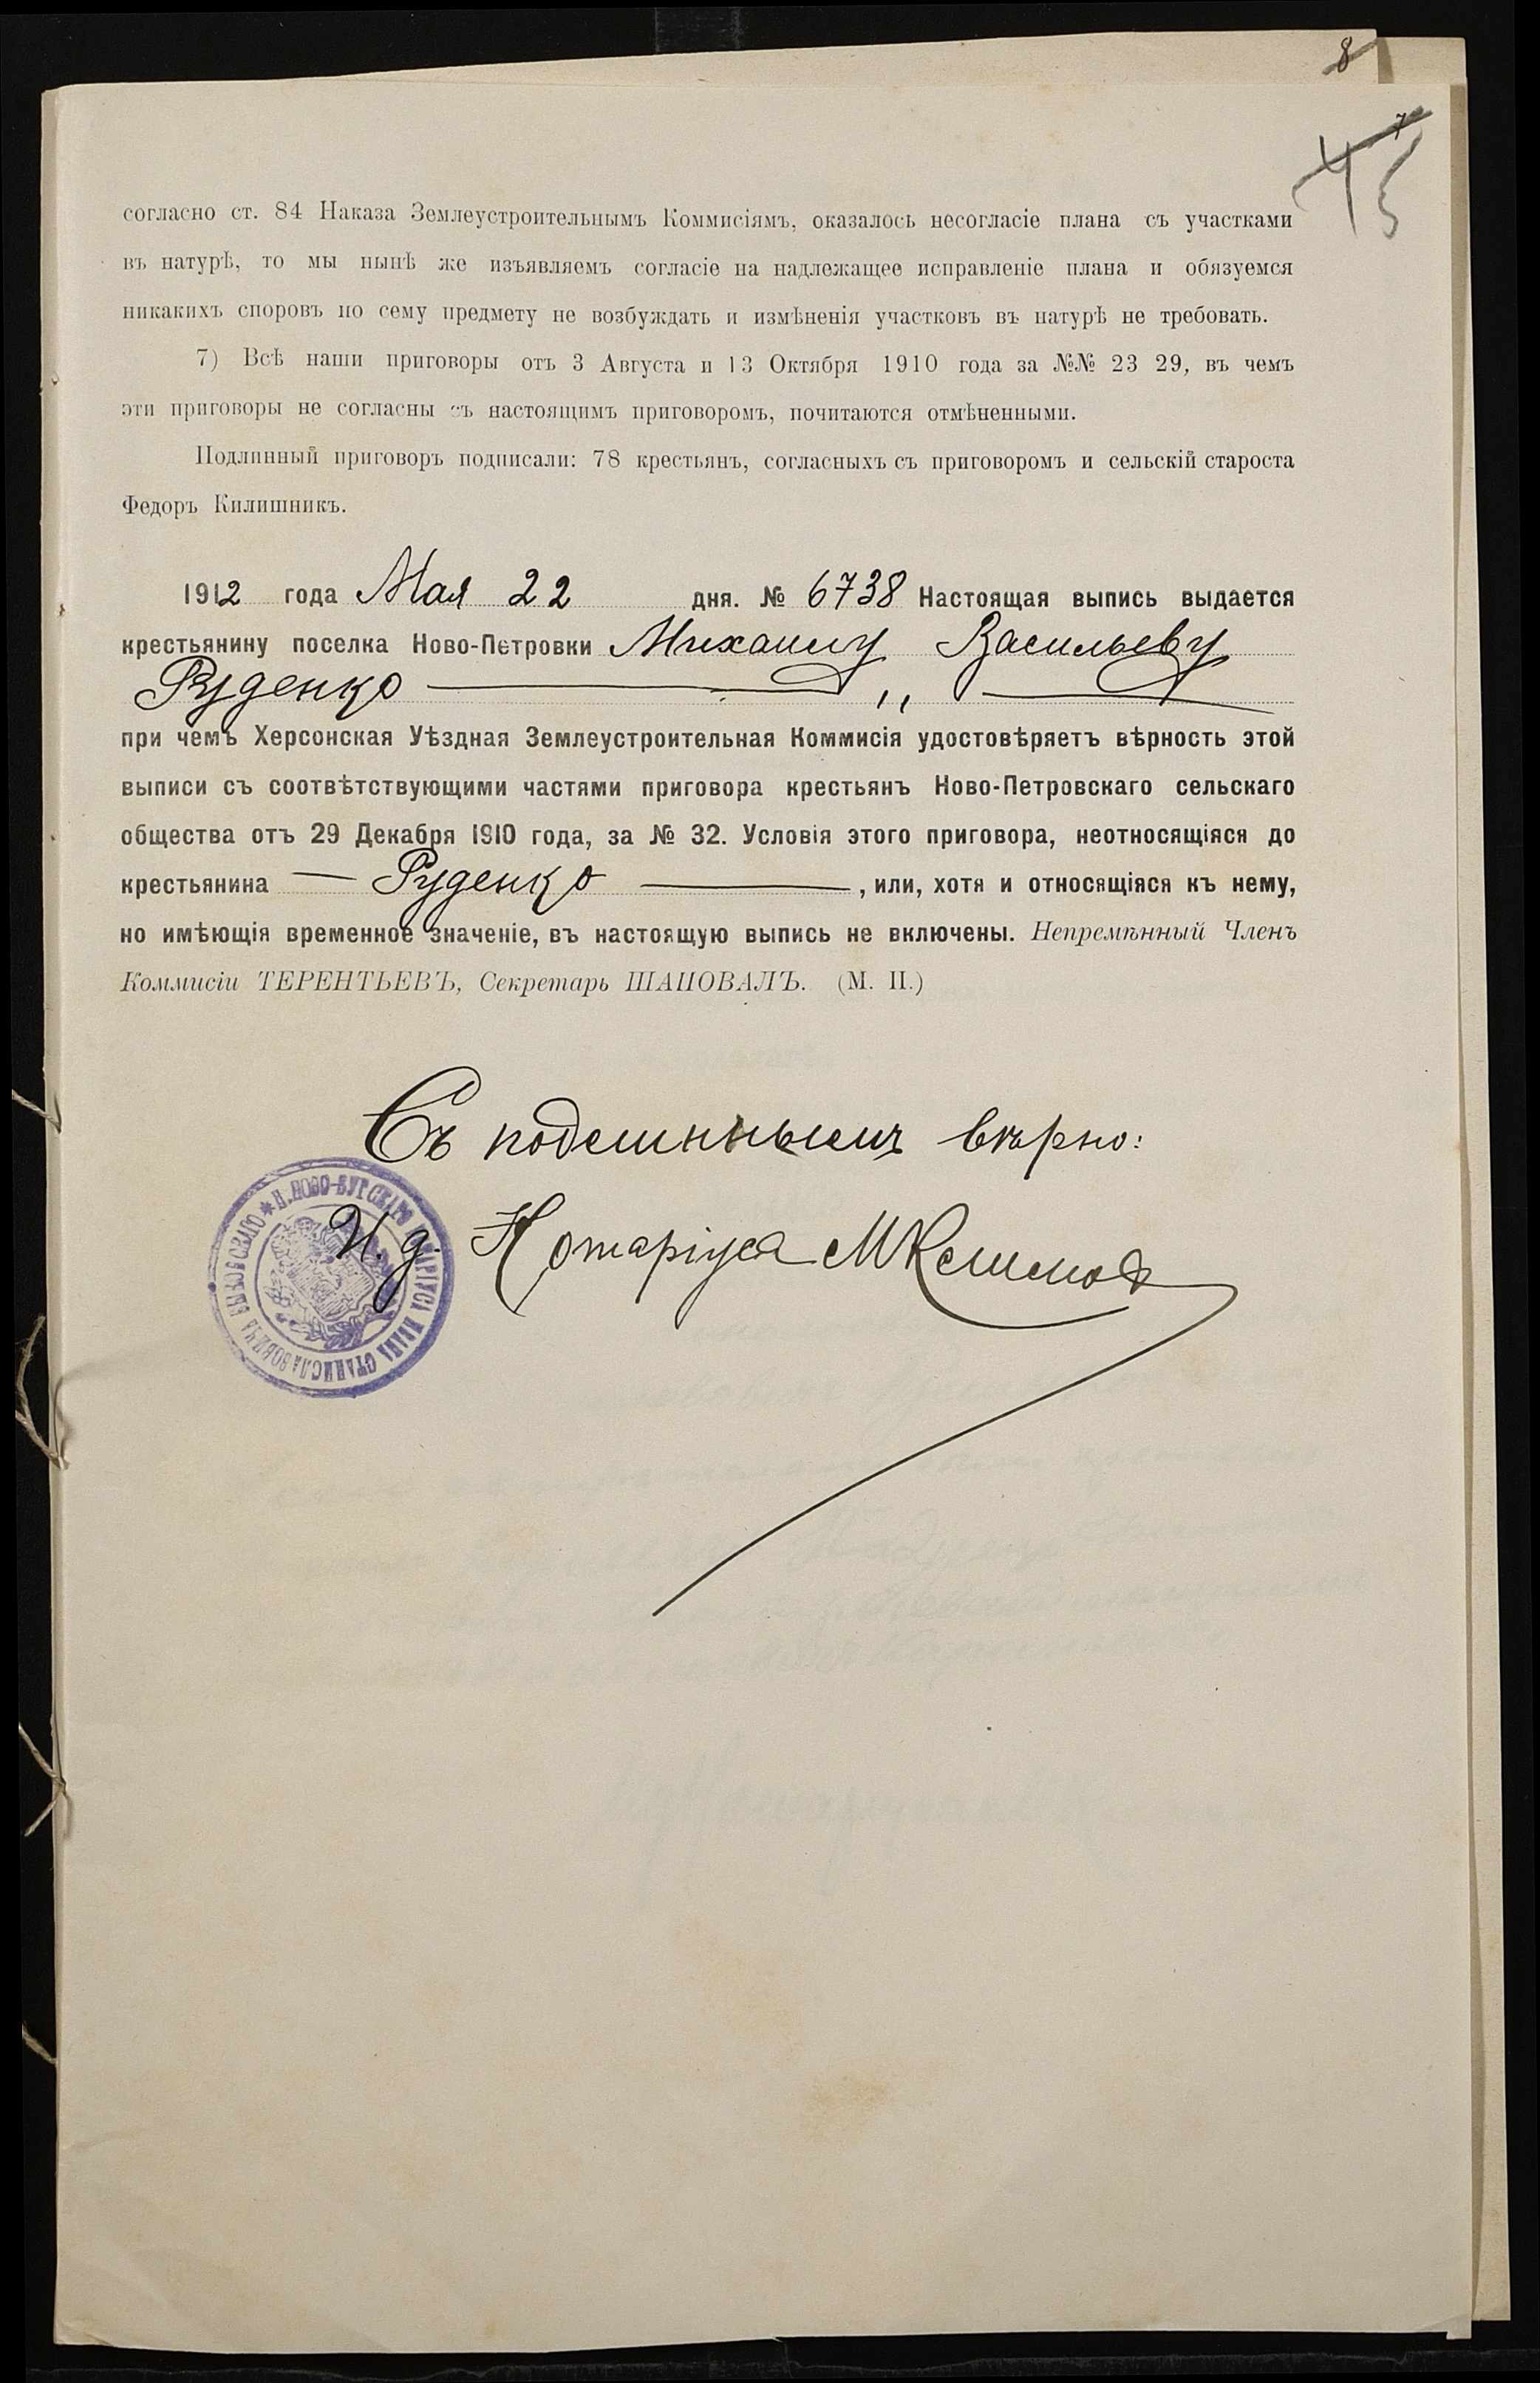 8
7
45
согласно ст. 84 Наказа Землеустроительнымъ Коммисіямъ, оказалось несогласіе плана съ участками
въ натурѣ, то мы нынѣ же изъявляемъ согласіе на надлежащее исправленіе плана и обязуемся
никакихъ споровъ по сему предмету не возбуждать и измѣненія участковъ въ натурѣ не требовать.
7) Всѣ наши приговоры отъ 3 Августа и 13 Октября 1910 года за №№ 23 29, въ чемъ
эти приговоры не согласны съ настоящимъ приговоромъ, почитаются отмѣненными.
Подлинный приговоръ подписали: 78 крестьянъ, согласныхъ съ приговоромъ и сельскій староста
Федоръ Килишникъ.
1912 года Мая 22 дня. № 6738 Настоящая выпись выдается
крестьянину поселка Ново-Петровки Михаилу Васильеву
Руденко — „ —
при чемъ Херсонская Уѣздная Землеустроительная Коммисія удостовѣряетъ вѣрность этой
выписи съ соотвѣтствующими частями приговора крестьянъ Ново-Петровскаго сельскаго
общества отъ 29 Декабря 1910 года, за № 32. Условія этого приговора, неотносящіяся до
крестьянина — Руденко —, или, хотя и относящіяся къ нему,
но имѣющія временное значеніе, въ настоящую выпись не включены. Непремѣнный Членъ
Коммисіи ТЕРЕНТЬЕВЪ, Секретарь ШАПОВАЛЪ. (М. П.)
Съ подлиннымъ вѣрно:
И. д. Нотаріуса
НОВО-БУГСКАГО НОТАРІУСА ИВАНА СТАНИСЛАВОВИЧА